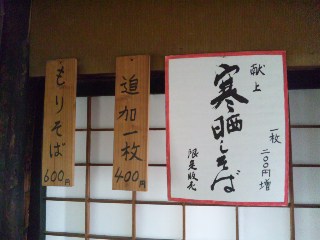 献上
寒晒しそば
一枚
二〇〇円増
限定販売
追加一枚
400円
もりそば
600円